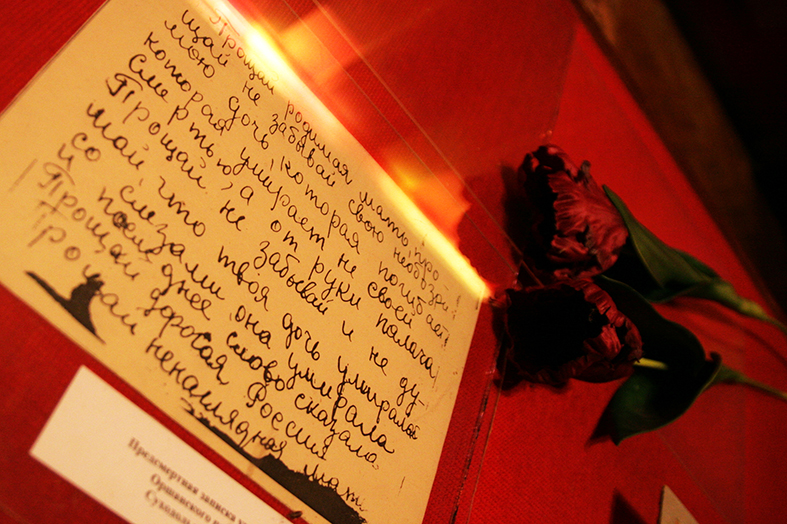 Прощай родимая мать, про-
щай не забывай свою необозри-
мою дочь которая погибает
которая умирает не своей
Смертью, а от руки палача
Прощай, не забывай и не ду-
май что твоя дочь умирала
со слезами она умирала
и последнее слово сказала.
Прощай дорогая Россия
Прощай ненаглядная мать
Предсмертная записка
Оршанского